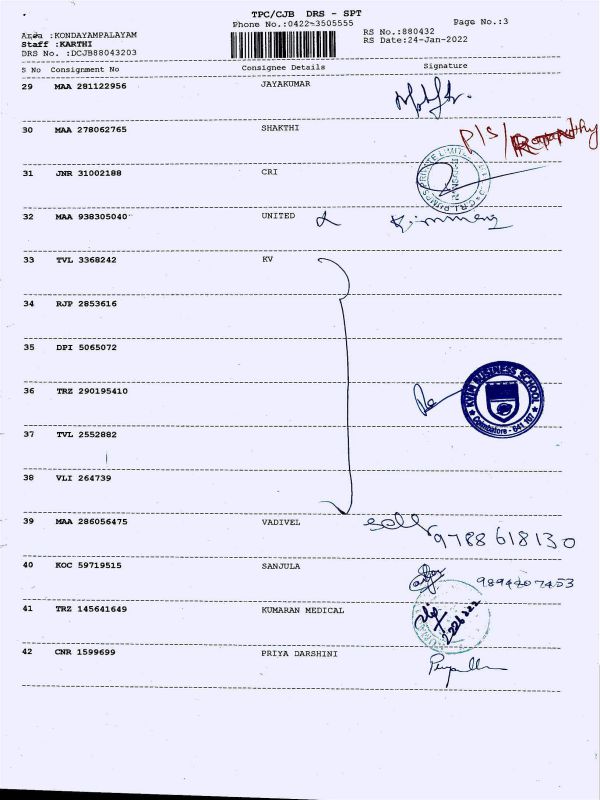 TPC/CJB DRS - SPT
Phone No.:0422-3505555
Page No.:3
Area :KONDAYAMPALAYAM
RS No.:880432
Staff :KARTHI
RS Date:24-Jan-2022
DRS No. :DCJB88043203
S No Consignment No Consignee Details Signature
29 MAA 281122956 JAYAKUMAR
30 MAA 278062765 SHAKTHI
P/S/
31 JNR 31002188 CRI
32 MAA 938305040 UNITED
33 TVL 3368242 KV
34 RJP 2853616
35 DPI 5065072
36 TRZ 290195410
KVIM BUSINESS SCHOOL
Coimbatore - 641 107
37 TVL 2552882
38 VLI 264739
39 MAA 286056475 VADIVEL
9788618130
40 KOC 59719515 SANJULA
9894207453
41 TRZ 145641649 KUMARAN MEDICAL
42 CNR 1599699 PRIYA DARSHINI